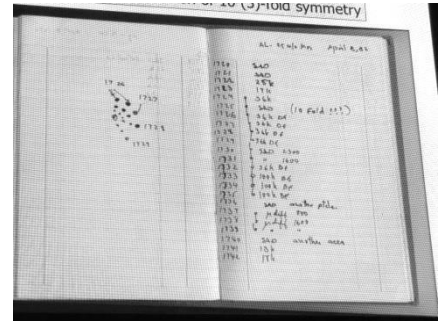 of 10 (5)-fold symmetry
17 26
1727
1728
1729
Al- w/o Mn April 8, 82
1720 SAD
1721 SAD
1722 25k
1723 17k
1724 36k
1725 SAD (10 Fold ???)
1726 36k DF
1727 36k DF
1728 36k DF
1729 36k DF
1730 SAD
1731 "
1732 36k DF
1733 100k DF
1734 100k DF
1735 100k DF
1736 SAD another
1737 μdiff
1738 μdiff
1739 " "
1740 SAD another area
1741 13k
1742 17k